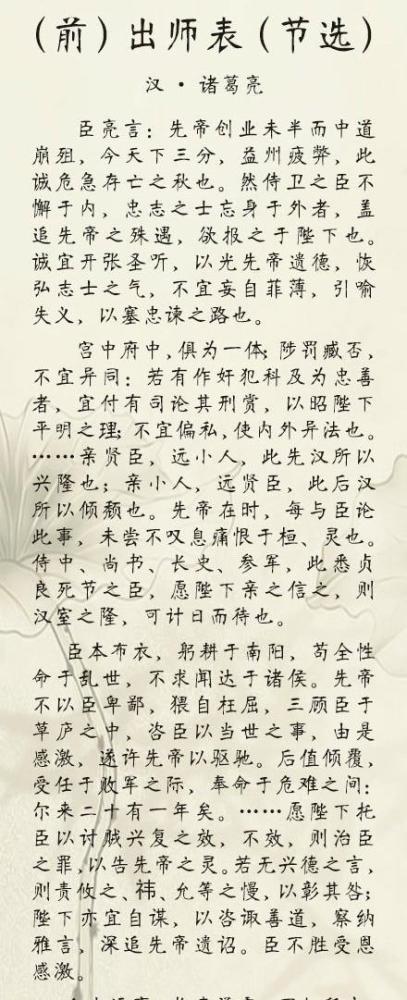 （前）出师表（节选）
汉·诸葛亮
臣亮言：先帝创业未半而中道
崩殂，今天下三分，益州疲弊，此
诚危急存亡之秋也。然侍卫之臣不
懈于内，忠志之士忘身于外者，盖
追先帝之殊遇，欲报之于陛下也。
诚宜开张圣听，以光先帝遗德，恢
弘志士之气，不宜妄自菲薄，引喻
失义，以塞忠谏之路也。
宫中府中，俱为一体；陟罚臧否，
不宜异同：若有作奸犯科及为忠善
者，宜付有司论其刑赏，以昭陛下
平明之理；不宜偏私，使内外异法也。
……亲贤臣，远小人，此先汉所以
兴隆也；亲小人，远贤臣，此后汉
所以倾颓也。先帝在时，每与臣论
此事，未尝不叹息痛恨于桓、灵也。
侍中、尚书、长史、参军，此悉贞
良死节之臣，愿陛下亲之信之，则
汉室之隆，可计日而待也。
臣本布衣，躬耕于南阳，苟全性
命于乱世，不求闻达于诸侯。先帝
不以臣卑鄙，猥自枉屈，三顾臣于
草庐之中，咨臣以当世之事，由是
感激，遂许先帝以驱驰。后值倾覆，
受任于败军之际，奉命于危难之间：
尔来二十有一年矣。……愿陛下托
臣以讨贼兴复之效，不效，则治臣
之罪，以告先帝之灵。若无兴德之言，
则责攸之、祎、允等之慢，以彰其咎；
陛下亦宜自谋，以咨诹善道，察纳
雅言，深追先帝遗诏。臣不胜受恩
感激。